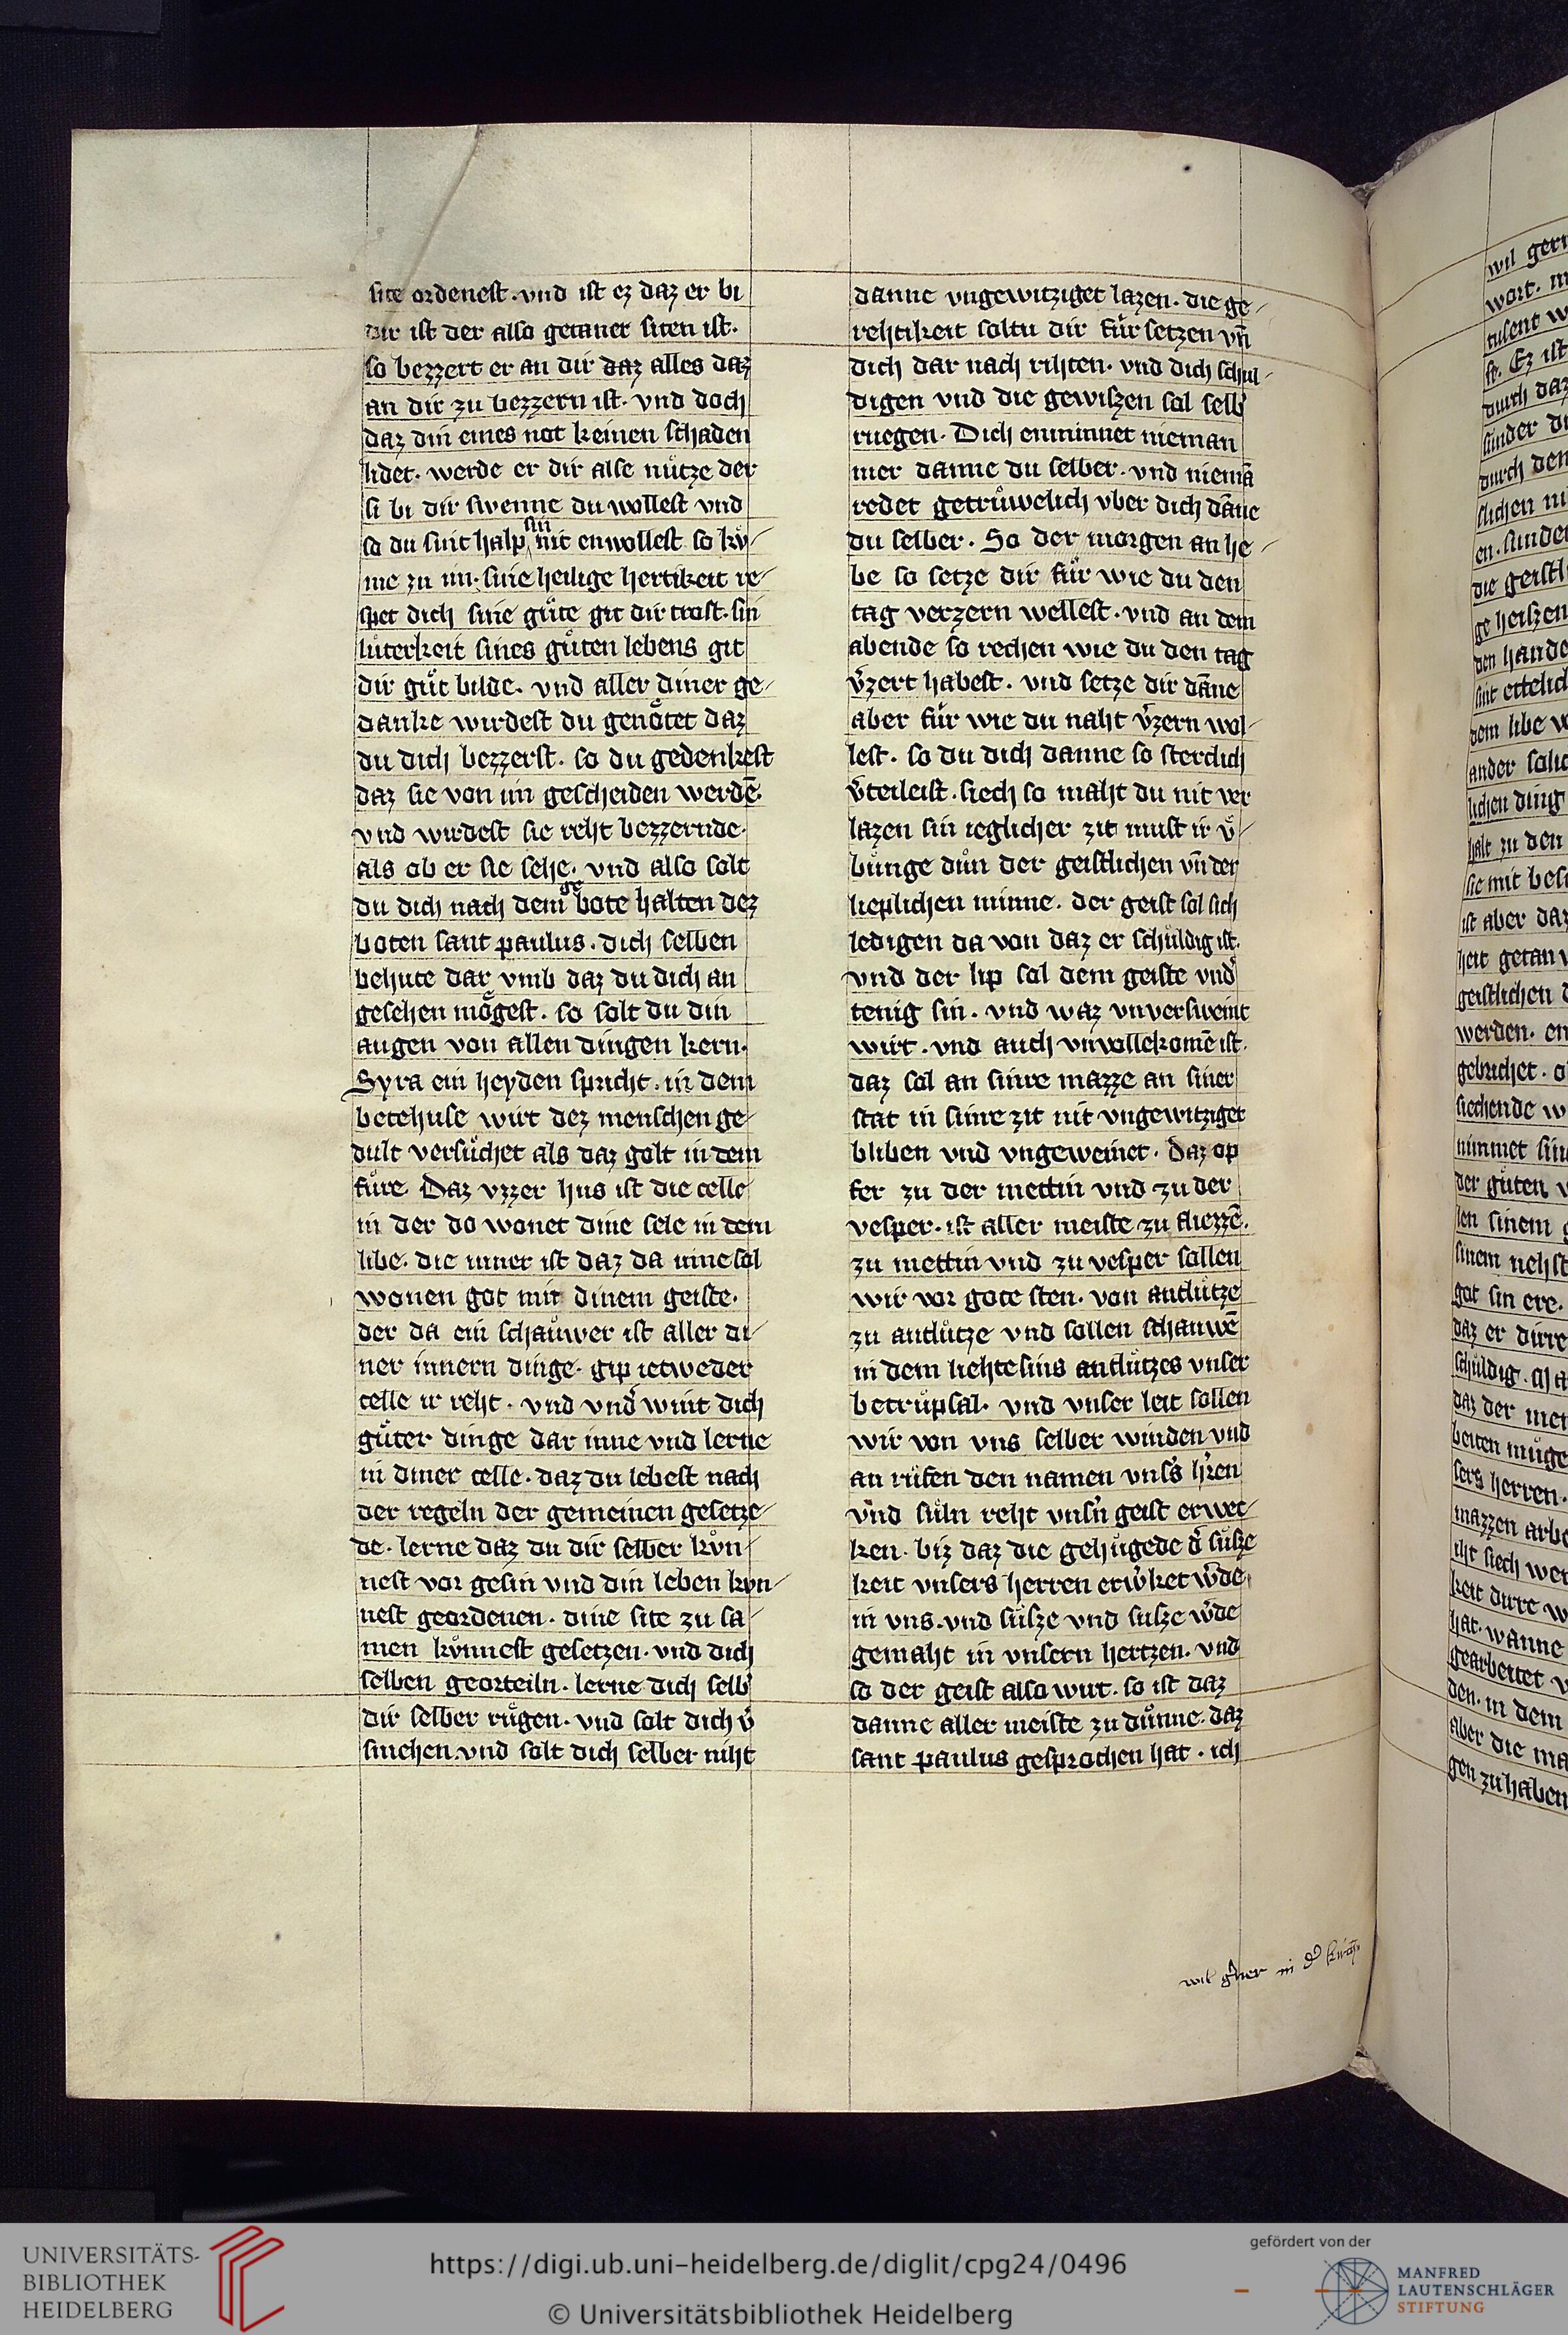 site ordenest. vnd ist ez daz er bi
dir ist der also getaner siten ist.
so bezzert er an dir daz alles daz
an dir zu bezzern ist. vnd doch
daz din eines not keinen schaden
lidet. werde er dir alse nuͤtze der
si bi dir swenne du wollest vnd
so du sint halp sin nit enwollest so kuͦ-
me zu im. sine heilige hertikeit re-
spet dich sine guͤte git dir trost. sin
luterkeit sines guͦten lebens git
dir guͦt bilde. vnd aller diner ge-
danke wirdest du genoͤtet daz
du dich bezzerst. so du gedenkest
daz sie von im gescheiden werdē.
vnd wirdest sie reht bezzernde.
als ob er sie sehe. vnd also solt
du dich nach dem gebote halten dez
boten sant paulus. dich selben
behute dar vmb daz du dich an
gesehen moͤgest. so solt du din
augen von allen dingen kern.
Syra ein heyden spricht. in dem
betehuse wirt dez menschen ge-
dult versuͦchet als daz golt in dem
fuͤre. Daz vzzer hus ist die celle
in der do wonet dine sele in dem
libe. die inner ist daz da inne sol
wonen got mit dinem geiste.
der da ein schauͤwer ist aller di-
ner innern dinge. gip ietweder
celle ir reht. vnd vnd' wint dich
guͦter dinge dar inne vnd lerne
in diner celle. daz du lebest nach
der regeln der gemeinen gesetze-
de. lerne daz du dir selber kuͦn-
nest vor gesin vnd din leben kun-
nest geordenen. dine site zu sa-
men kuͦnnest gesetzen. vnd dich
selben georteiln. lerne dich selb'
dir selber ruͤgen. vnd solt dich v'
smehen. vnd solt dich selber niht
danne vngewitziget lazen. die ge-
rehtikeit soltu dir fuͤr setzen vn̄
dich dar nach rihten. vnd dich schul-
digen vnd die gewiszen sol selb'
ruegen. Dich enminnet nieman
mer danne du selber. vnd niemā
redet getruͤwelich vber dich dāne
du selber. So der morgen an he-
be so setze dir fuͤr wie du den
tag verzern wellest. vnd an dem
abende so rechen wie du den tag
v'zert habest. vnd setze dir dāne
aber fuͤr wie du naht v'zern wol-
lest. so du dich danne so sterclich
v'teileist. siech so maht du nit ver
lazen sin ieglicher zit must ir v-
bunge duͦn der geistlichen vn̄ der
lieplichen minne. der geist sol sich
ledigen da von daz er schuldig ist.
vnd der lip sol dem geiste vnd'
tenig sin. vnd waz vnversweint
wirt. vnd auch vnvollekomē ist.
daz sol an sinre mazze an siner
stat in sinre zit nit vngewitziget
bliben vnd vngeweinet. Daz op
fer zu der mettin vnd zu der
vesper. ist aller meiste zu fliezzē.
zu mettin vnd zu vesper sollen
wir vor gote sten. von antlutze
zu antluͤtze vnd sollen schauwē
in dem liehte sins antluͤtzes vnser
betruͤpsal. vnd vnser leit sollen
wir von vns selber winden vnd
an ruͦfen den namen vns's h'ren
vnd suͤln reht vns'n geist erwec-
ken. biz daz die gehuͤgede d' suͤsze
keit vnsers herren erw'ket w'de
in vns. vnd suͤsze vnd susze w'de
gemaht in vnsern hertzen. vnd
so der geist also wirt. so ist daz
danne aller meiste zu duͦnne. daz
sant paulus gesprochen hat. ich
wil g'ner in d'
wil gern
wort.
tusent w
Ez ist
durch daz
sunder di
durch den
slichen ni
en. sunder
die geistl
ge heiszen
den hande
sint ettelich
dem libe v
ander solic
lichen ding
halt zu den
sie mit besc
ist aber daz
heit getan v
geistlichen d
werden. en
gebrichet. o
siechende w
nimmet sin
der guͦten v
len sinem g
sinem nehst
got sin ere.
daz er dirre
schuldig.
daz der men
beiten muge
sers herren.
mazzen arbe
iht siech wer
keit dirre w
hat. wanne
gearbeitet v
den. in dem
aber die ma
gen zu haben
UNIVERSITÄTS-
BIBLIOTHEK
HEIDELBERG
https://digi.ub.uni-heidelberg.de/diglit/cpg24/0496
© Universitätsbibliothek Heidelberg
gefördert von der
MANFRED
LAUTENSCHLÄGER
STIFTUNG